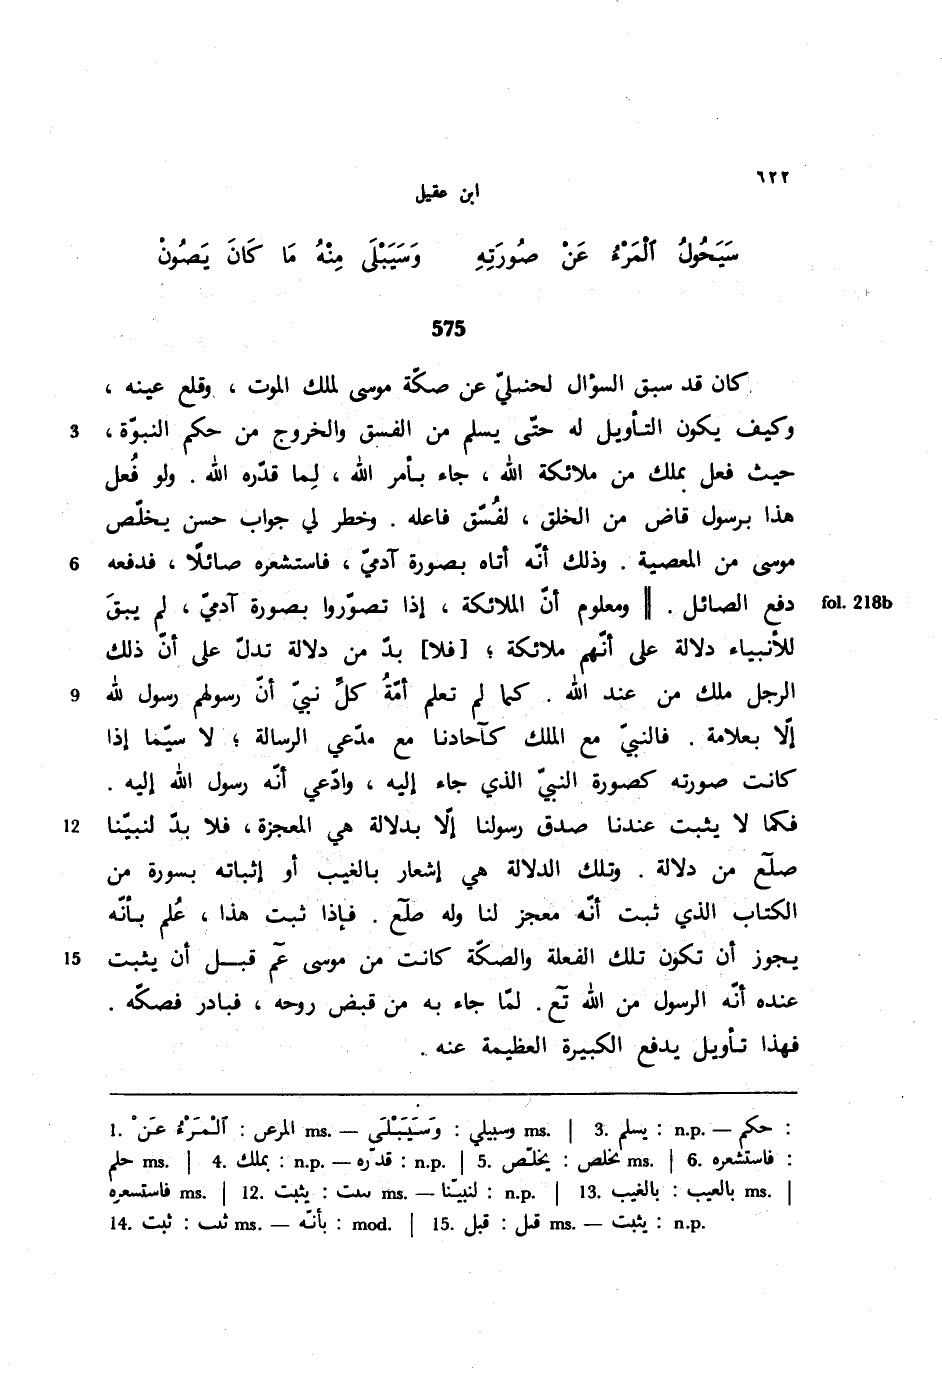 ٦٢٢
ابن عقيل
سَيَحُولُ ٱلْمَرْءُ عَنْ صُورَتِهِ وَسَيَبْلَى مِنْهُ مَا كَانَ يَصُونْ
575
كان قد سبق السؤال لحنبليّ عن صكّة موسى لملك الموت ، وقلع عينه ،
3 وكيف يكون التأويل له حتّى يسلم من الفسق والخروج من حكم النبوّة ،
حيث فعل بملك من ملائكة الله ، جاء بأمر الله ، لِما قدّره الله . ولو فُعل
هذا برسول قاض من الخلق ، لفُسّق فاعله . وخطر لي جواب حسن يخلّص
6 موسى من المعصية . وذلك أنّه أتاه بصورة آدميّ ، فاستشعره صائلًا ، فدفعه
دفع الصائل . ‖ ومعلوم أنّ الملائكة ، إذا تصوّروا بصورة آدميّ ، لم يبقَ fol. 218b
للأنبياء دلالة على أنّهم ملائكة ؛ [فلا] بدّ من دلالة تدلّ على أنّ ذلك
9 الرجل ملك من عند الله . كما لم تعلم أمّةُ كلِّ نبيّ أنّ رسولهم رسول لله
إلّا بعلامة . فالنبيّ مع الملك كآحادنا مع مدّعي الرسالة ؛ لا سيّما إذا
كانت صورته كصورة النبيّ الذي جاء إليه ، وادّعي أنّه رسول الله إليه .
12 فكما لا يثبت عندنا صدق رسولنا إلّا بدلالة هي المعجزة ، فلا بدّ لنبيّنا
صلّع من دلالة . وتلك الدلالة هي إشعار بالغيب أو إثباته بسورة من
الكتاب الذي ثبت أنّه معجز لنا وله صلّع . فإذا ثبت هذا ، عُلم بأنّه
15 يجوز أن تكون تلك الفعلة والصكّة كانت من موسى عٓم قبل أن يثبت
عنده أنّه الرسول من الله تٓع . لمّا جاء به من قبض روحه ، فبادر فصكّه .
فهذا تأويل يدفع الكبيرة العظيمة عنه .
1. ٱلْمَرْءُ عَنْ : المرعن ms. — وَسَيَبْلَى : وسيبلي ms. | 3. يسلم : n.p. — حكم :
حلم ms. | 4. بملك : n.p. — قدّره : n.p. | 5. يخلّص : تخلص ms. | 6. فاستشعره :
فاستسعره ms. | 12. يثبت : ms. — لنبيّنا : n.p. | 13. بالغيب : بالعيب ms. |
14. ثبت : ms. — بأنّه : mod. | 15. قبل : ms. — يثبت : n.p.